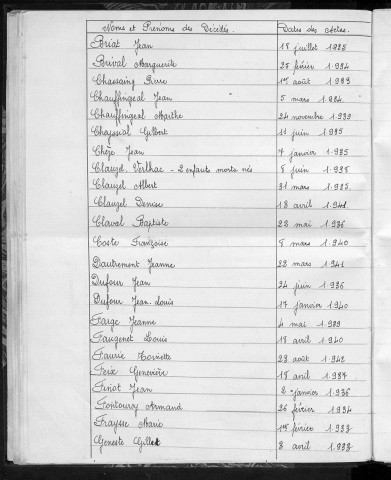 Noms et Prénoms des Décédés. Dates des Actes.
Briat Jean 18 juillet 1935
Brival Marguerite 25 février 1934
Chassaing Pierre 1er août 1933
Chauffingeal Jean 5 mars 1934
Chauffingeal Marthe 24 novembre 1939
Chayssial Gilbert 11 juin 1935
Chèze Jean 7 janvier 1935
Clauzel Verlhac - 2 enfants morts nés 5 juin 1935
Clauzel Albert 31 mars 1935
Clauzel Denise 18 avril 1941
Claval Baptiste 23 mai 1936
Coste Françoise 5 mars 1940
Dautrement Jeanne 22 mars 1941
Dufour Jean 24 juin 1936
Dufour Jean-Louis 17 janvier 1940
Farge Jeanne 4 mai 1939
Faugenet Louis 18 avril 1940
Faurie 23 août 1942
Feix Geneviève 15 avril 1937
Finot Jean 2 janvier 1936
Fontourcy Armand 26 février 1934
Fraysse Marie 1er février 1933
Geneste Gillet 8 avril 1933